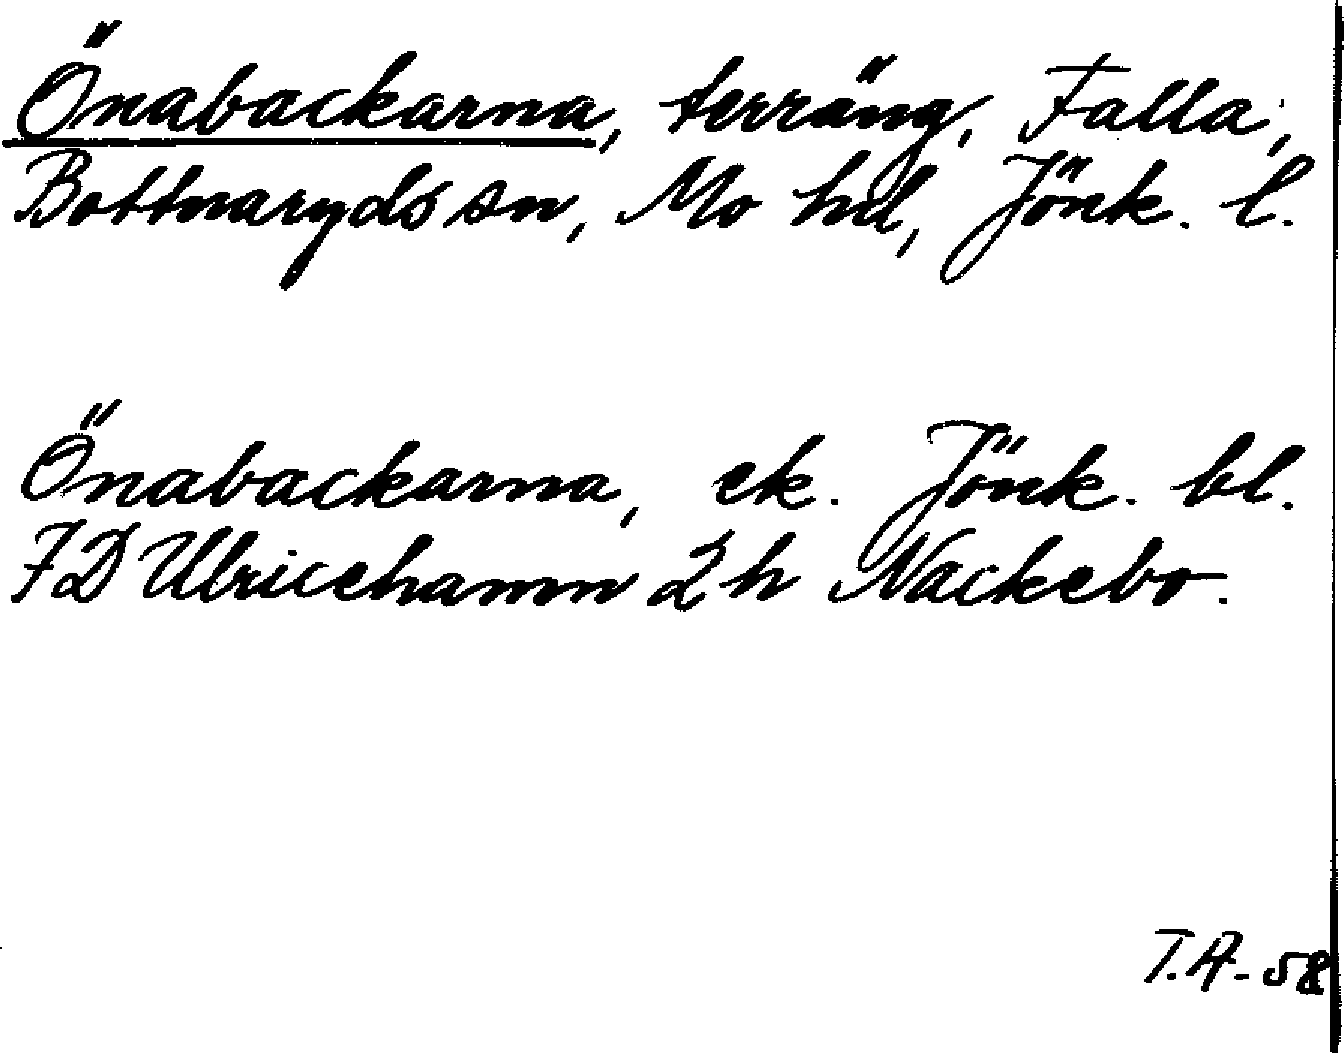 Önabackarna, terräng, Falla,
Bottnaryds sn, Mo hd, Jönk. l.
Önabackarna, ek. Jönk. bl.
7D Ulricehamn 2h Nackebo.
T.A-58